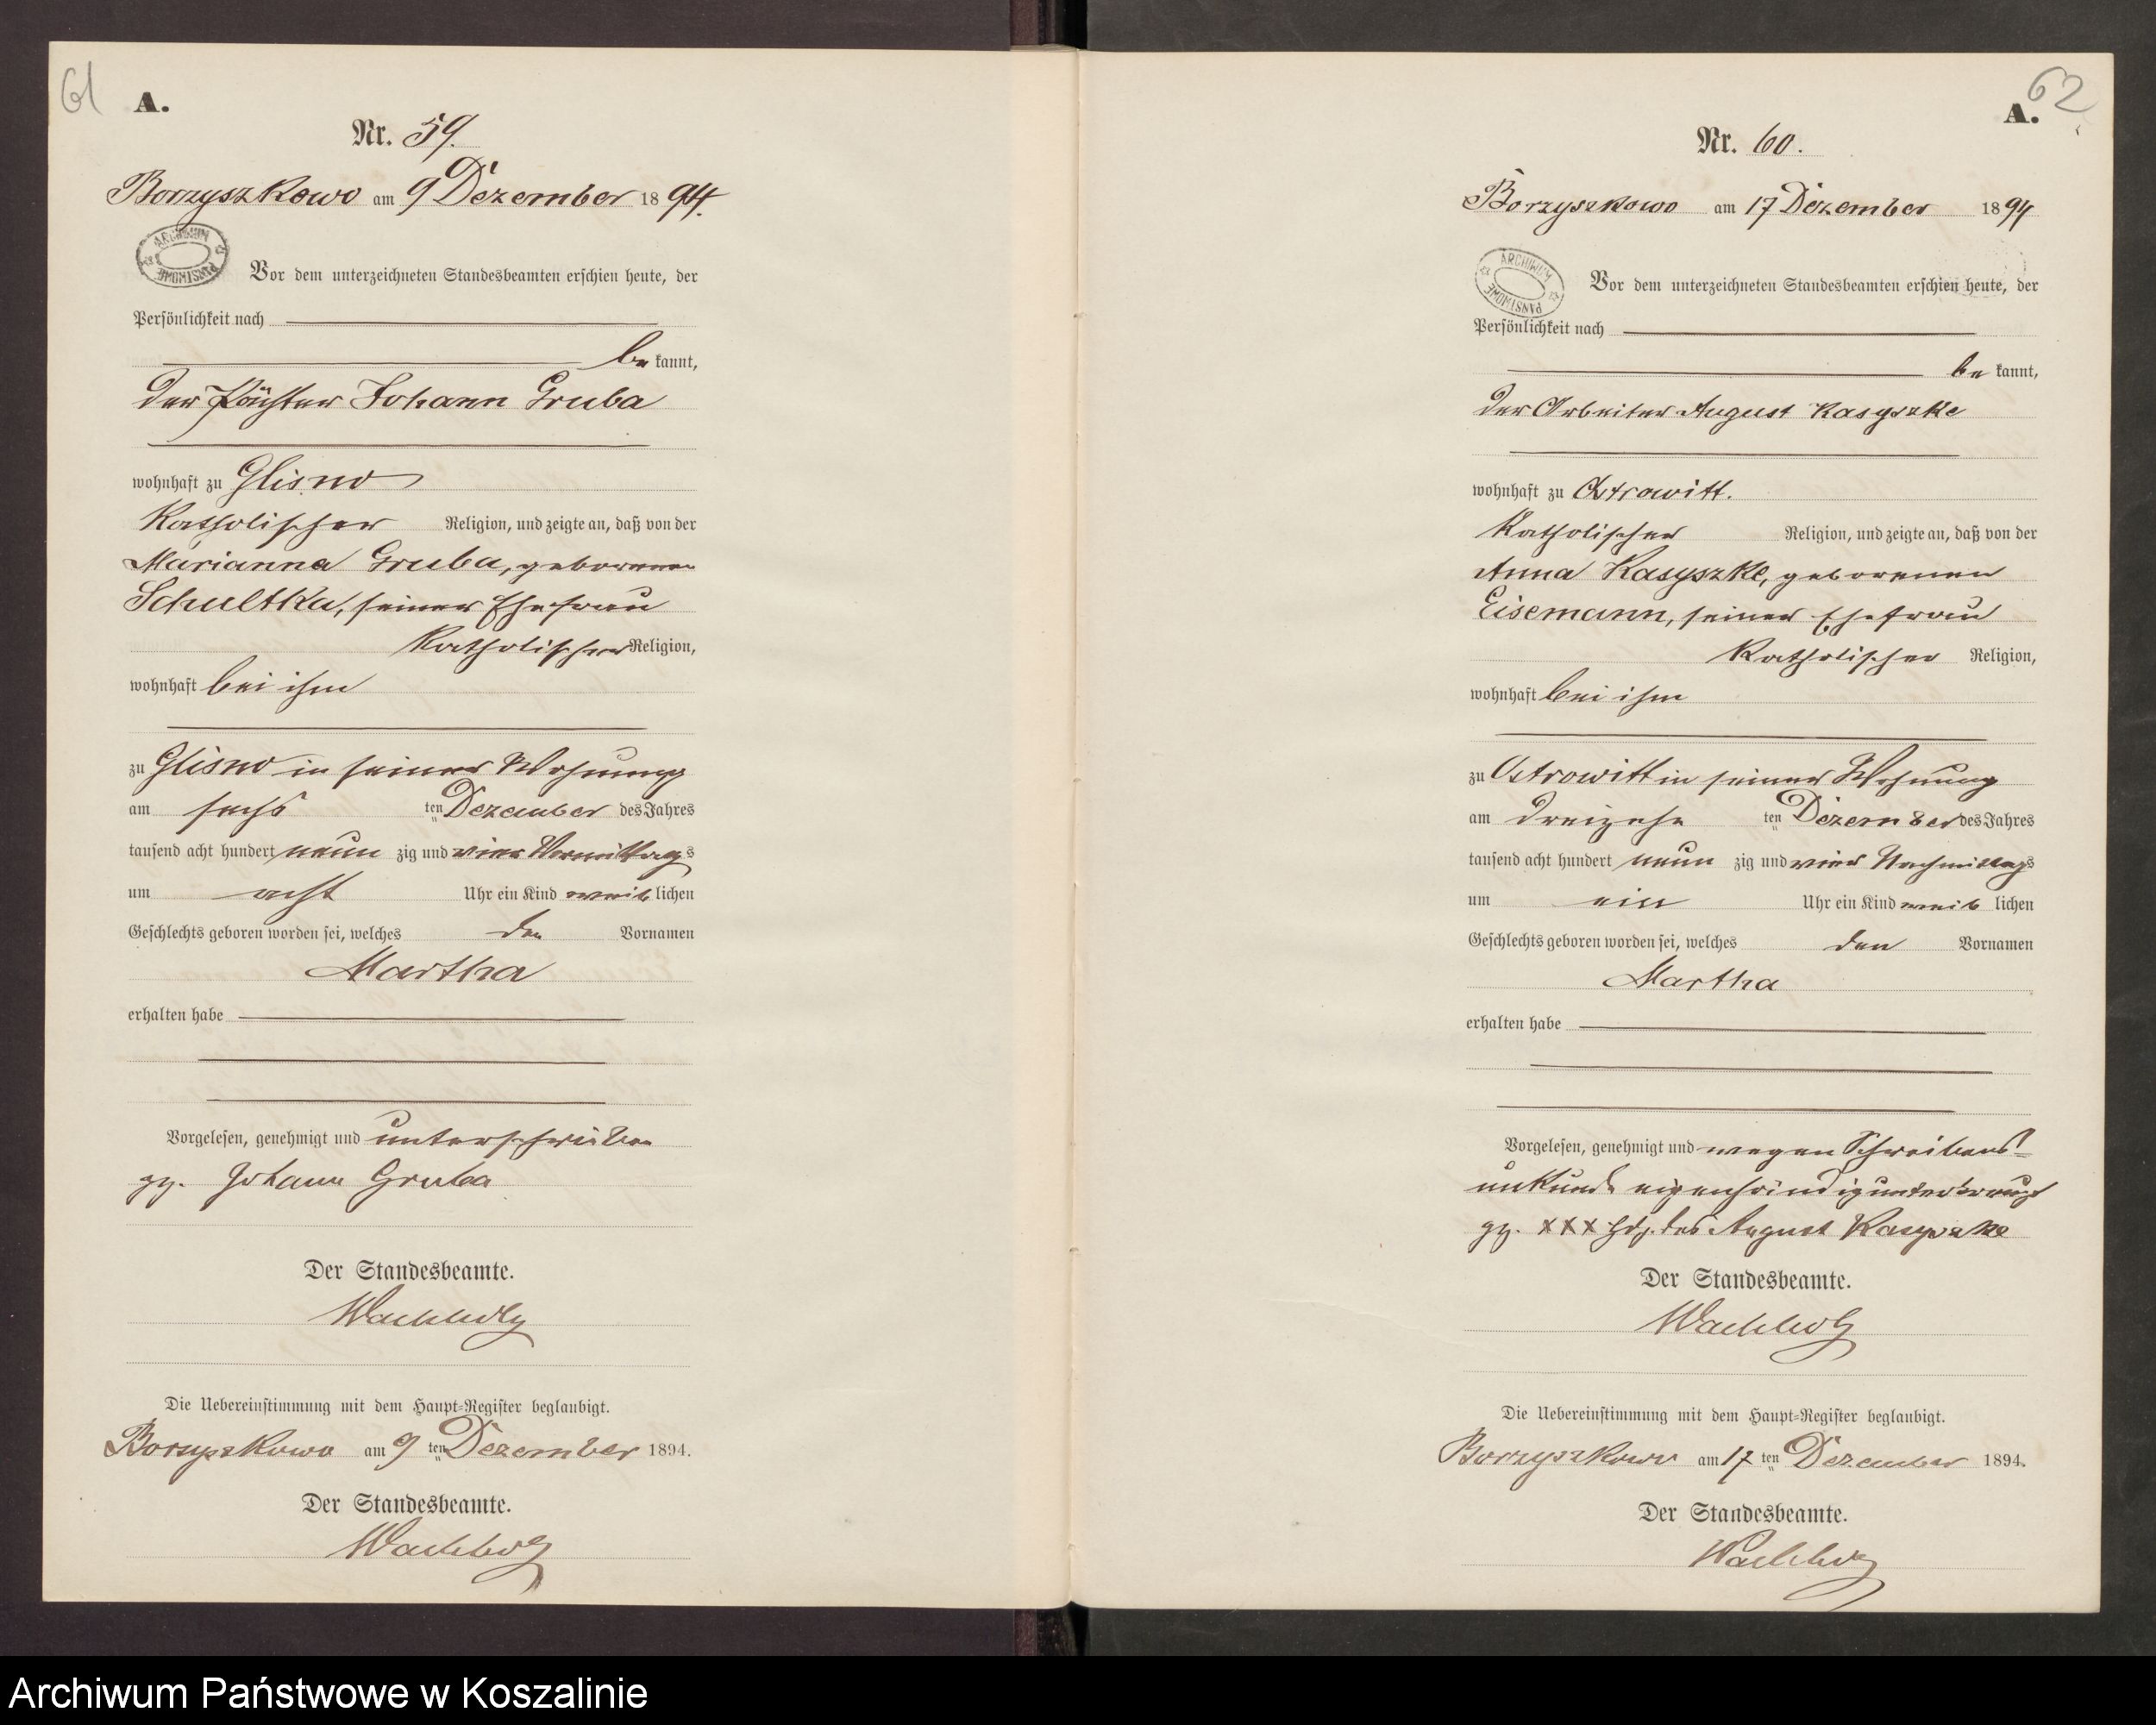 61
A.
Nr. 59.
Borzyszkowo am 9 Dezember 1894.
ARCHIWUM PAŃSTWOWE
Vor dem unterzeichneten Standesbeamten erschien heute, der
Persönlichkeit nach
be kannt,
der Pächter Johann Gruba
wohnhaft zu Glisno
Katholischer Religion, und zeigte an, daß von der
Marianna Gruba, geborenen
Schultka, seiner Ehefrau
Katholischer Religion,
wohnhaft bei ihm
zu Glisno in seiner Wohnung
am sechs ten Dezember des Jahres
tausend acht hundert neun zig und vier Vormittags
um acht Uhr ein Kind weib lichen
Geschlechts geboren worden sei, welches den Vornamen
Martha
erhalten habe
Vorgelesen, genehmigt und unterschrieben
gz. Johann Gruba
Der Standesbeamte.
Wachholz
Die Uebereinstimmung mit dem Haupt-Register beglaubigt.
Borzyszkowo am 9 ten Dezember 1894.
Der Standesbeamte.
Wachholz
62
A.
Nr. 60.
Borzyszkowo am 17 Dezember 1894
ARCHIWUM PAŃSTWOWE
Vor dem unterzeichneten Standesbeamten erschien heute, der
Persönlichkeit nach
be kannt,
der Arbeiter August Kasyszke
wohnhaft zu Ostrowitt.
Katholischer Religion, und zeigte an, daß von der
Anna Kasyszke, geborenen
Eisemann, seiner Ehefrau
Katholischer Religion,
wohnhaft bei ihm
zu Ostrowitt in seiner Wohnung
am dreizehn ten Dezember des Jahres
tausend acht hundert neun zig und vier Nachmittags
um ein Uhr ein Kind weib lichen
Geschlechts geboren worden sei, welches den Vornamen
Martha
erhalten habe
Vorgelesen, genehmigt und wegen Schreibens-
unkunde eigenhändig unterkreuzt
gz. XXX Hdz. des August Kasyszke
Der Standesbeamte.
Wachholz
Die Uebereinstimmung mit dem Haupt-Register beglaubigt.
Borzyszkowo am 17 ten Dezember 1894.
Der Standesbeamte.
Wachholz
Archiwum Państwowe w Koszalinie